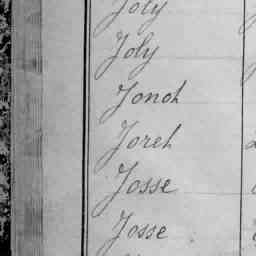 Joly
Joly
Jonot
Joret
Josse
Josse